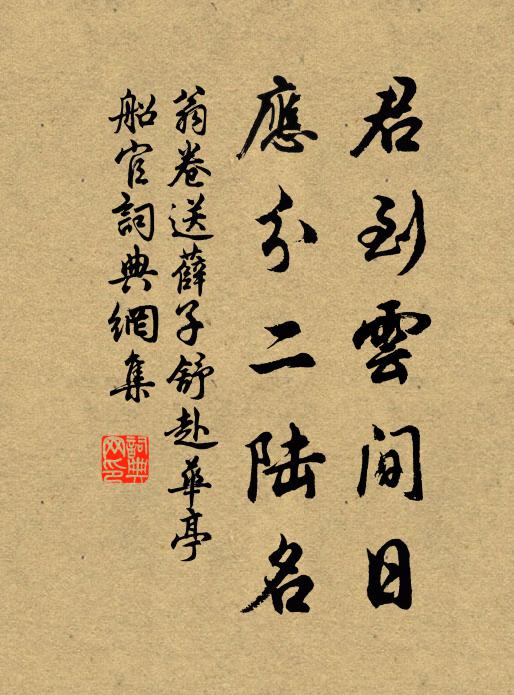 君到雲間日
應分二陆名
翁卷送薛子舒赴華亭
船官詞典網集
詞典网印